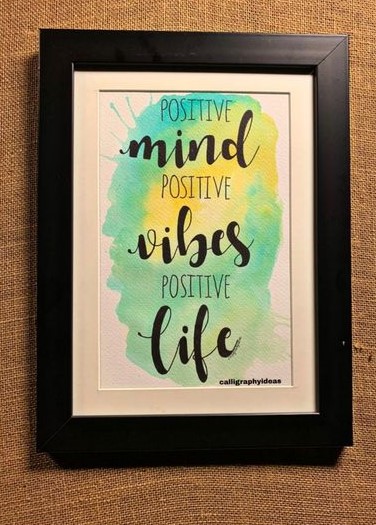 POSITIVE
mind
POSITIVE
vibes
POSITIVE
life
calligraphyideas